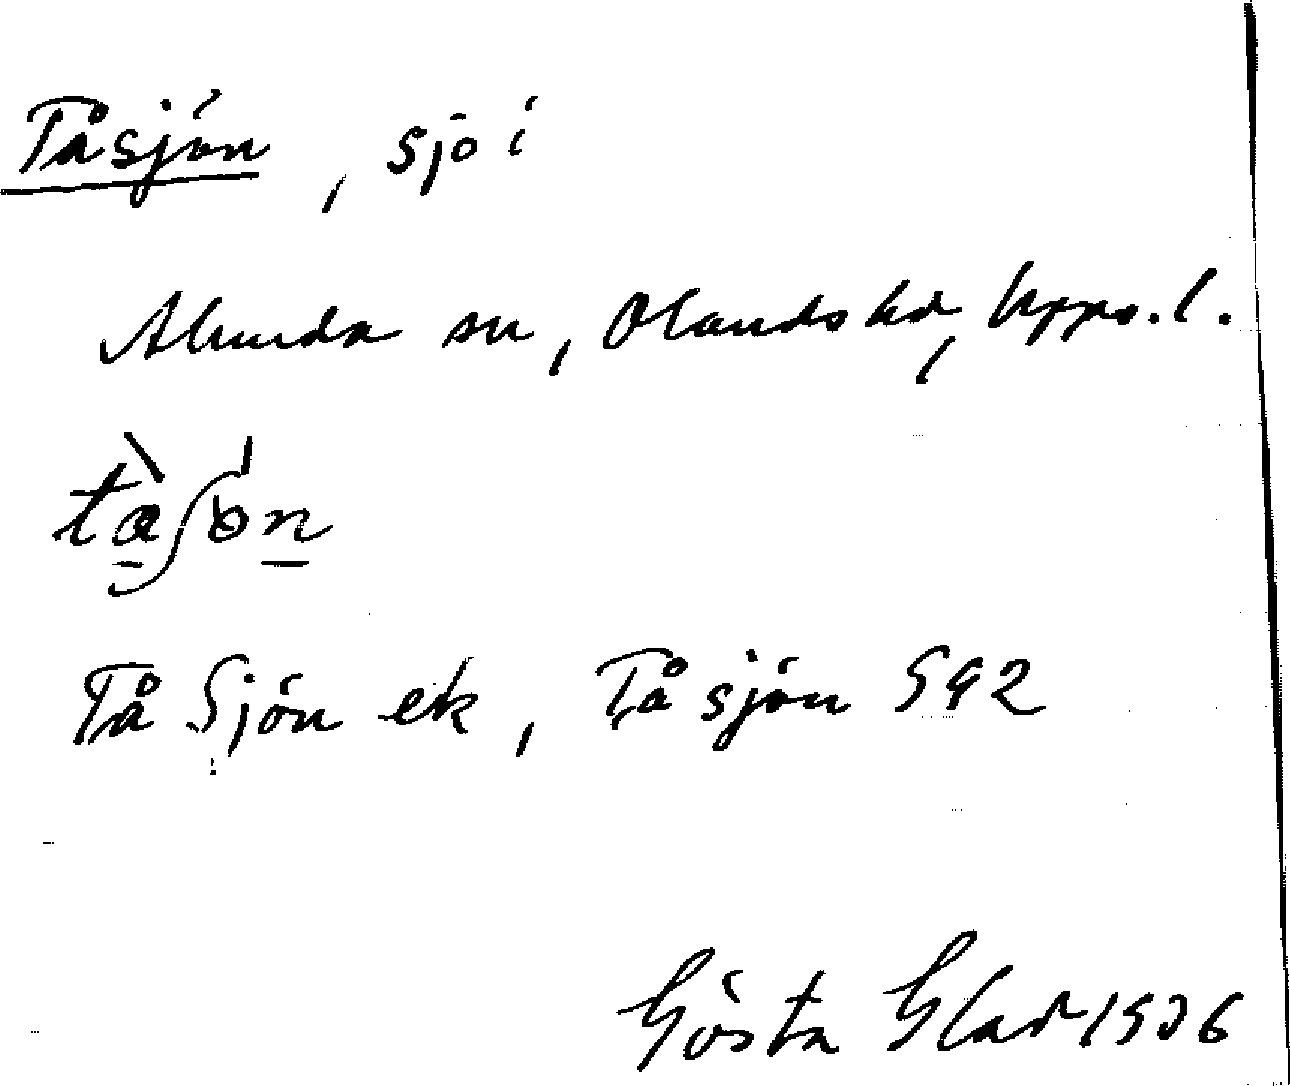 Tåsjön, sjö i
Alunda sn, Olands hd, Upps. l.
Tå Sjön ek, Tåsjön
Gösta Glad 1936